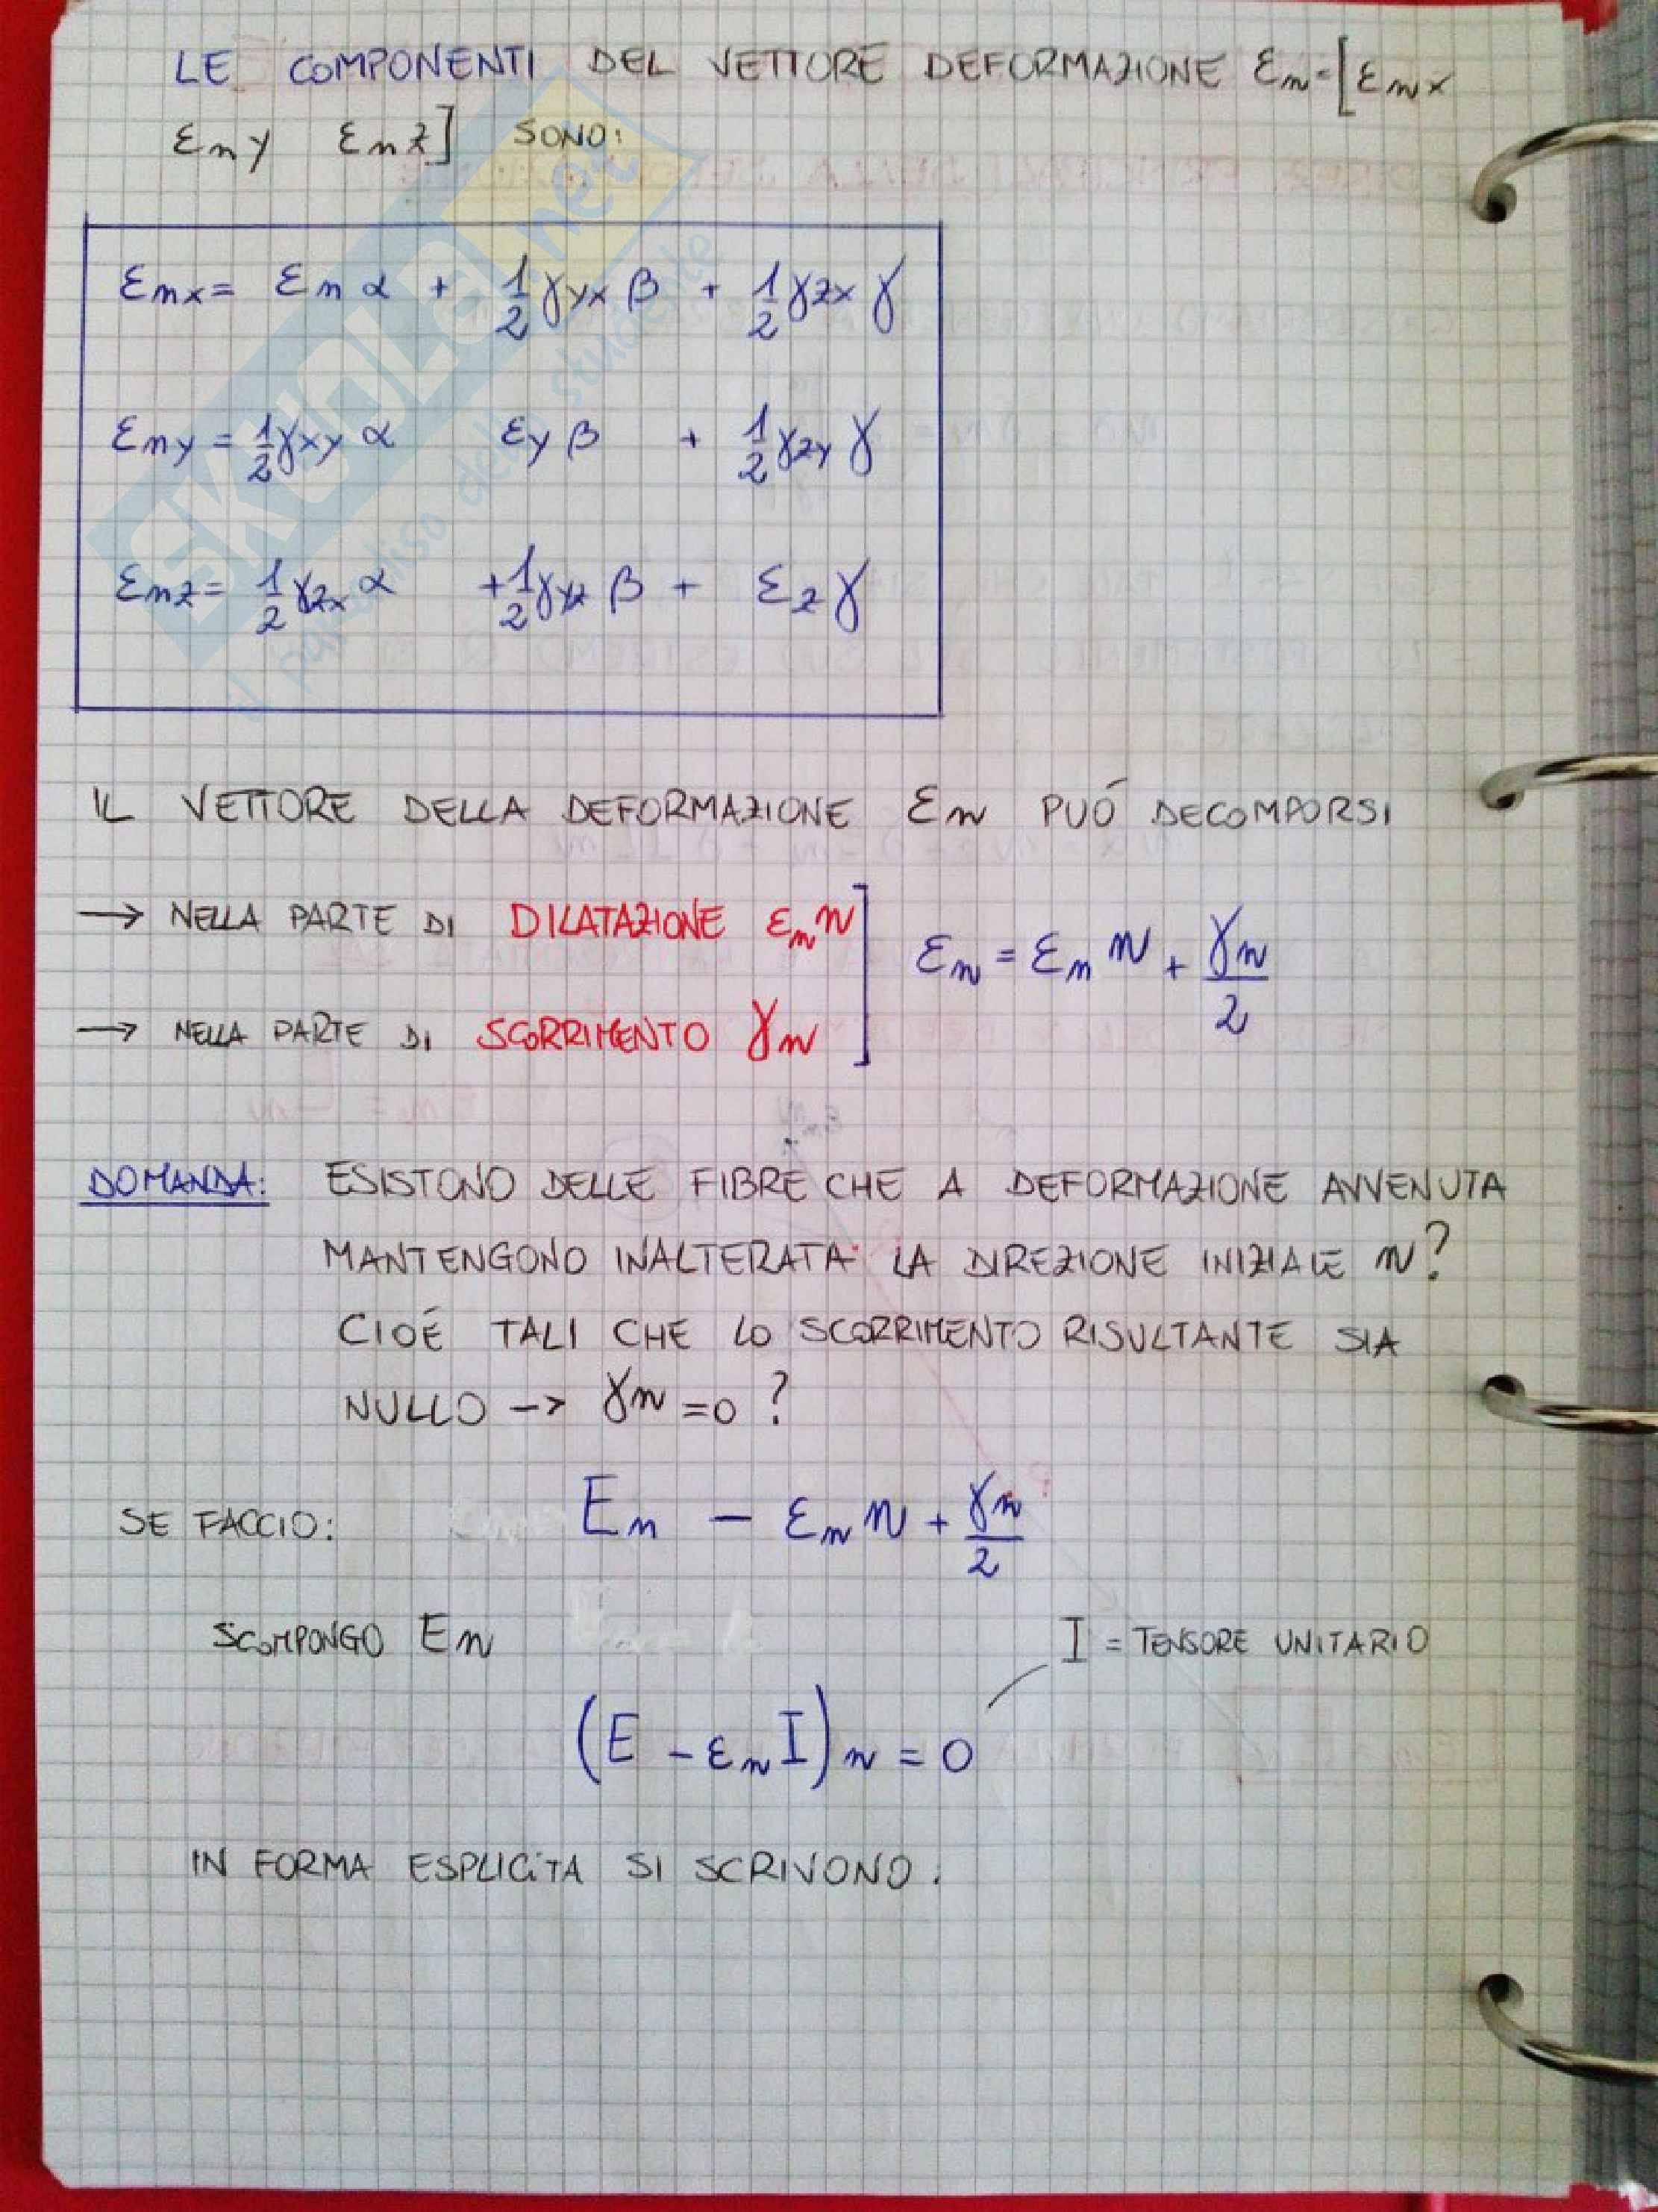 LE COMPONENTI DEL VETTORE DEFORMAZIONE εn=[εnx
εny εnz] SONO:
εnx= εn α + 1/2 γyx β + 1/2 γzx γ
εny = 1/2 γxy α εy β + 1/2 γzy γ
εnz= 1/2 γzx α +1/2 γyz β + εz γ
IL VETTORE DELLA DEFORMAZIONE εn PUÓ DECOMPORSI
→ NELLA PARTE DI DILATAZIONE εn n] εn = εn n + γn/2
→ NELLA PARTE DI SCORRIMENTO γn
DOMANDA: ESISTONO DELLE FIBRE CHE A DEFORMAZIONE AVVENUTA
MANTENGONO INALTERATA LA DIREZIONE INIZIALE n?
CIOÉ TALI CHE LO SCORRIMENTO RISULTANTE SIA
NULLO -> γn =0 ?
SE FACCIO: En - εn n + γn/2
SCOMPONGO En I = TENSORE UNITARIO
(E - εn I) n = 0
IN FORMA ESPLICITA SI SCRIVONO:
SKUOLA.net
il paradiso dello studente